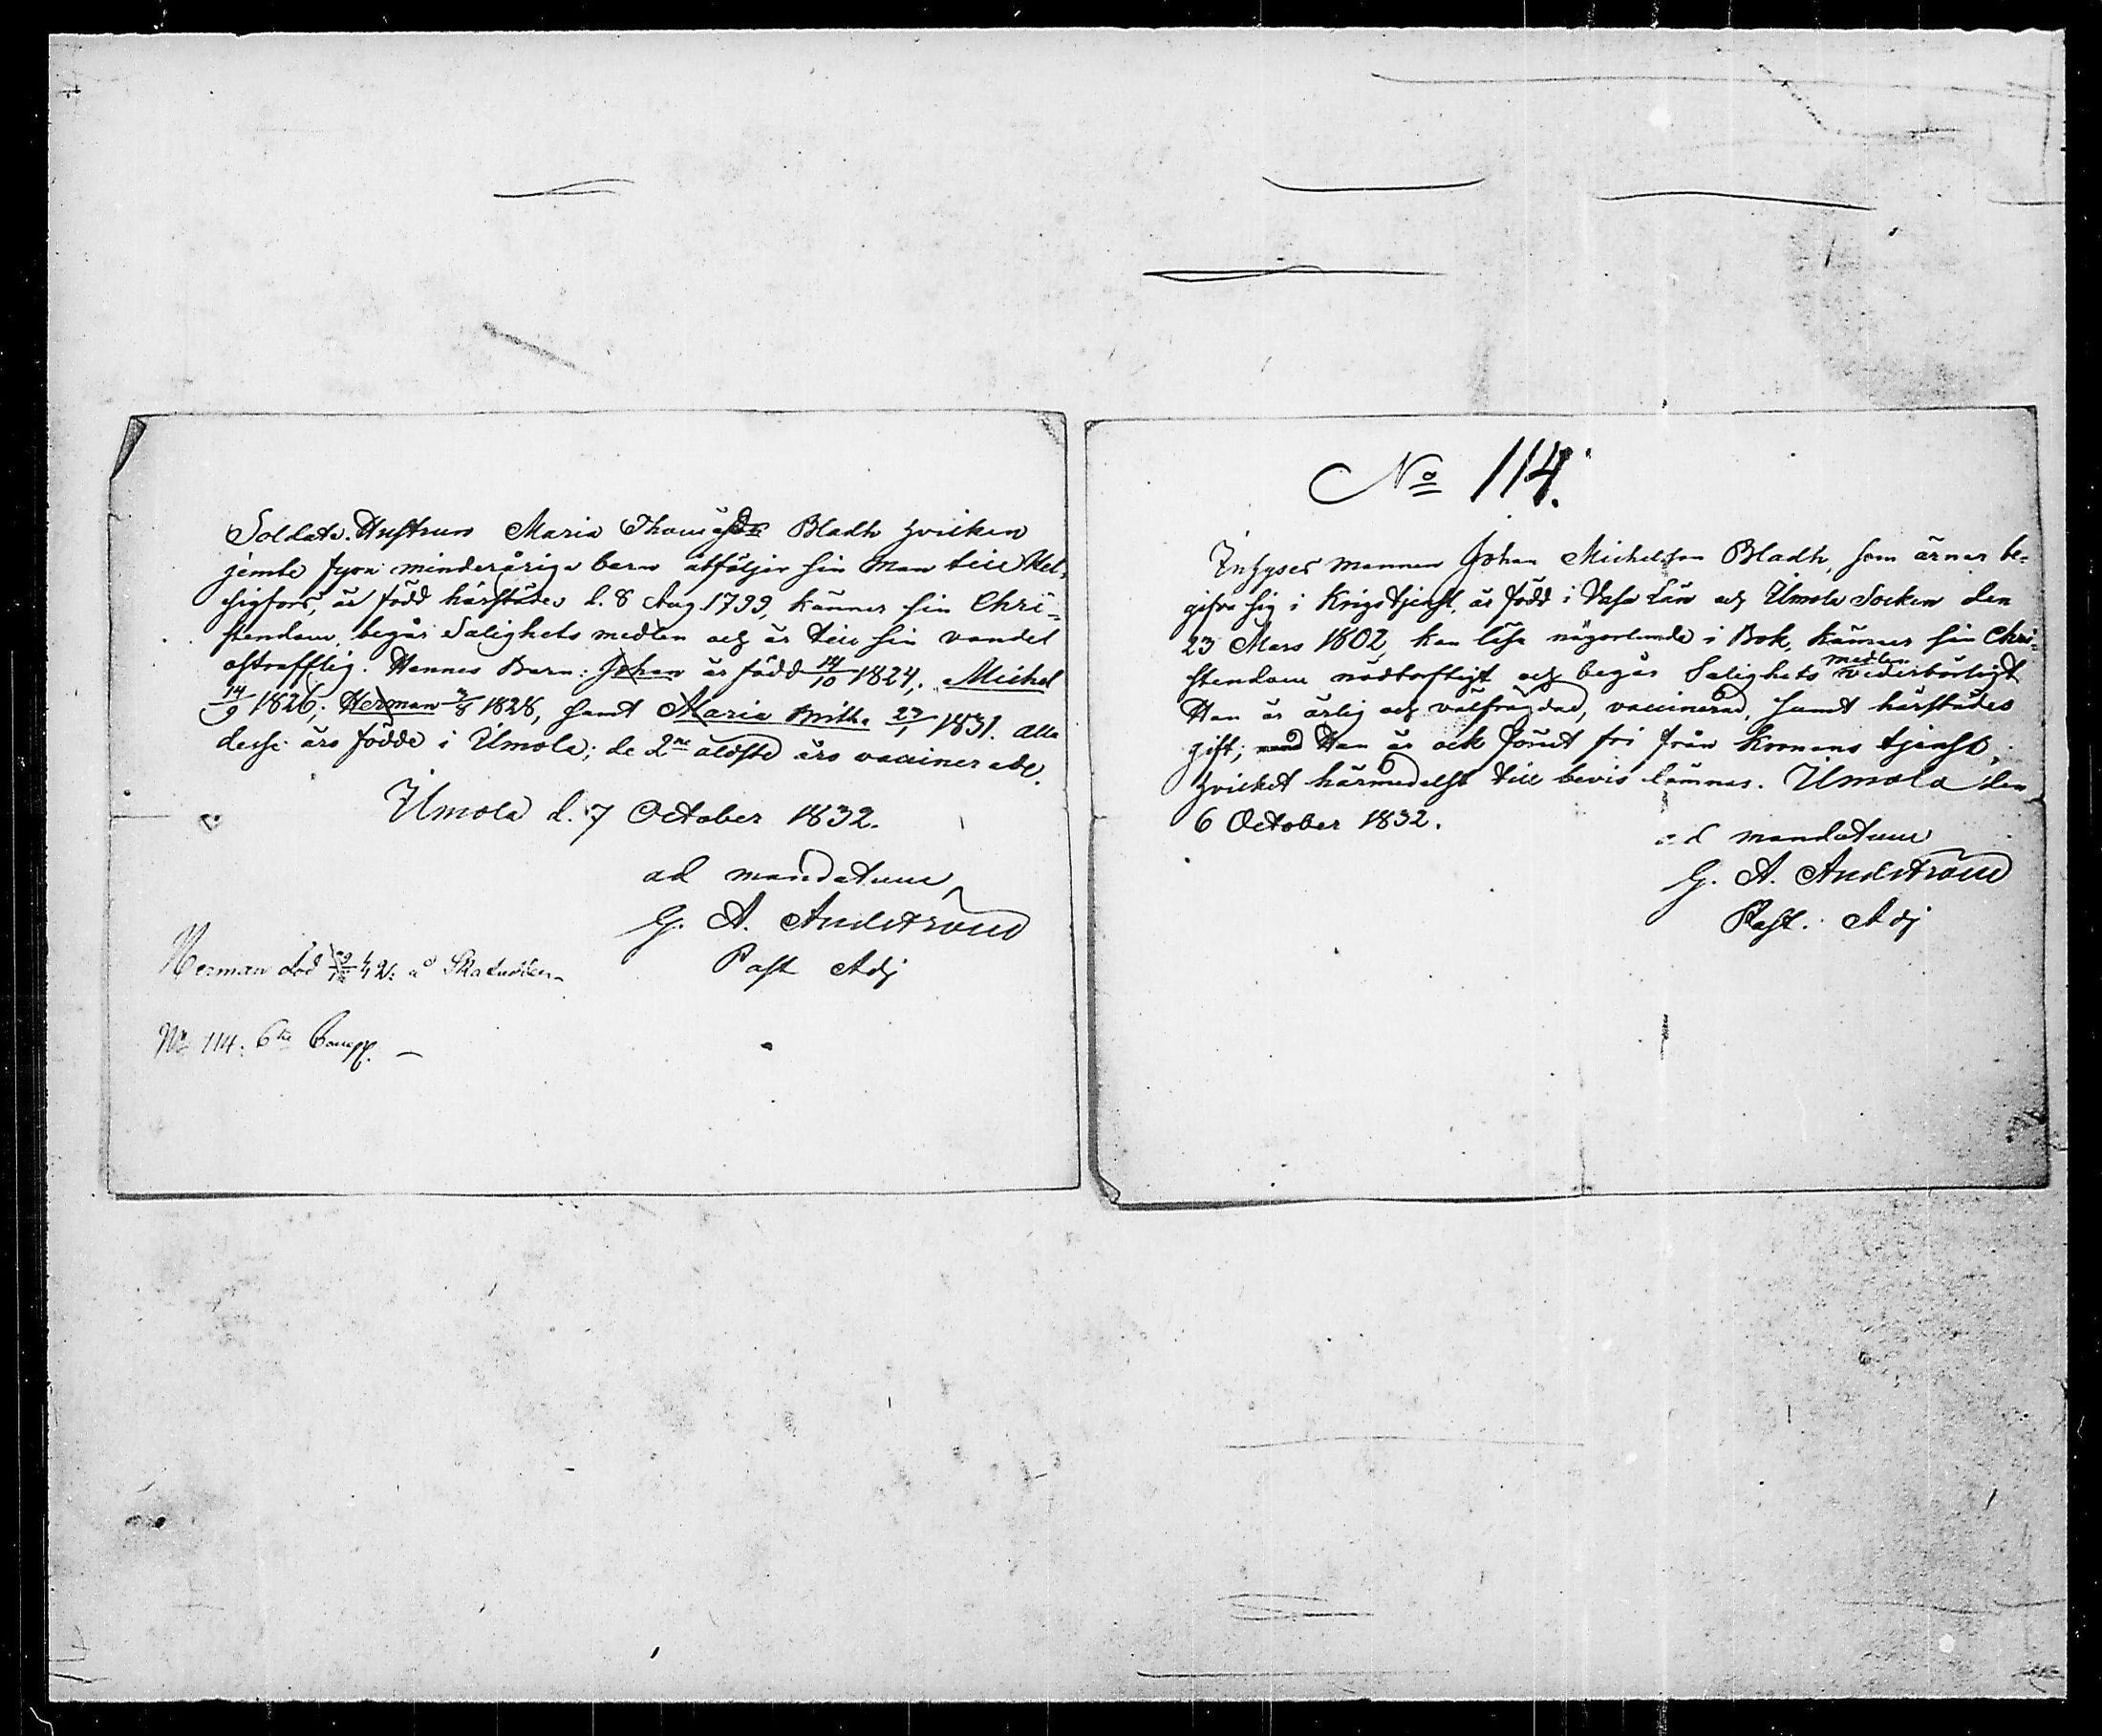 Soldats Hustrun Maria Thomäsdr Bladh hvilken
jemte fyra minderåriga barn åtföljer sin Man till Hel-
singfors, är född härstädes d. 8 Aug 1799, känner sin Chri-
stendom, begår Salighets medlen och är till sin vandel
ostrafflig. Hennes Barn: Johan är född 14/10 1824, Michel
14/9 1826, Herman 1828, samt Maria Mith. 27/1 1831. Alla
desse äro födde i Ilmola; de 2ne äldste äro vaccinerade.
Ilmola d. 7 October 1832.
ad mandatum
G. A. Andström
Past Adj
Herman död 42 å Skatudden
No 114. 6te Comp.
No 114.
Inhyses mannen Johan Michelsson Bladh, som ärnar be-
gifva sig i Krigstjenst, är född i Vasa Län och Ilmola Socken den
23 Mars 1802, kan läsa någorlunda i Bok, känner sin Chri-
stendom nödtorftigt och begår Salighets medlen vederbörligt
Han är ärlig och välfrägdad, vaccinerad, samt härstädes
gift; Han är ock förut fri från Kronans tjenst,
hvilket härmedelst till bevis lämnas. Ilmola den
6 October 1832.
ad mandatum
G. A. Andström
Past. Adj